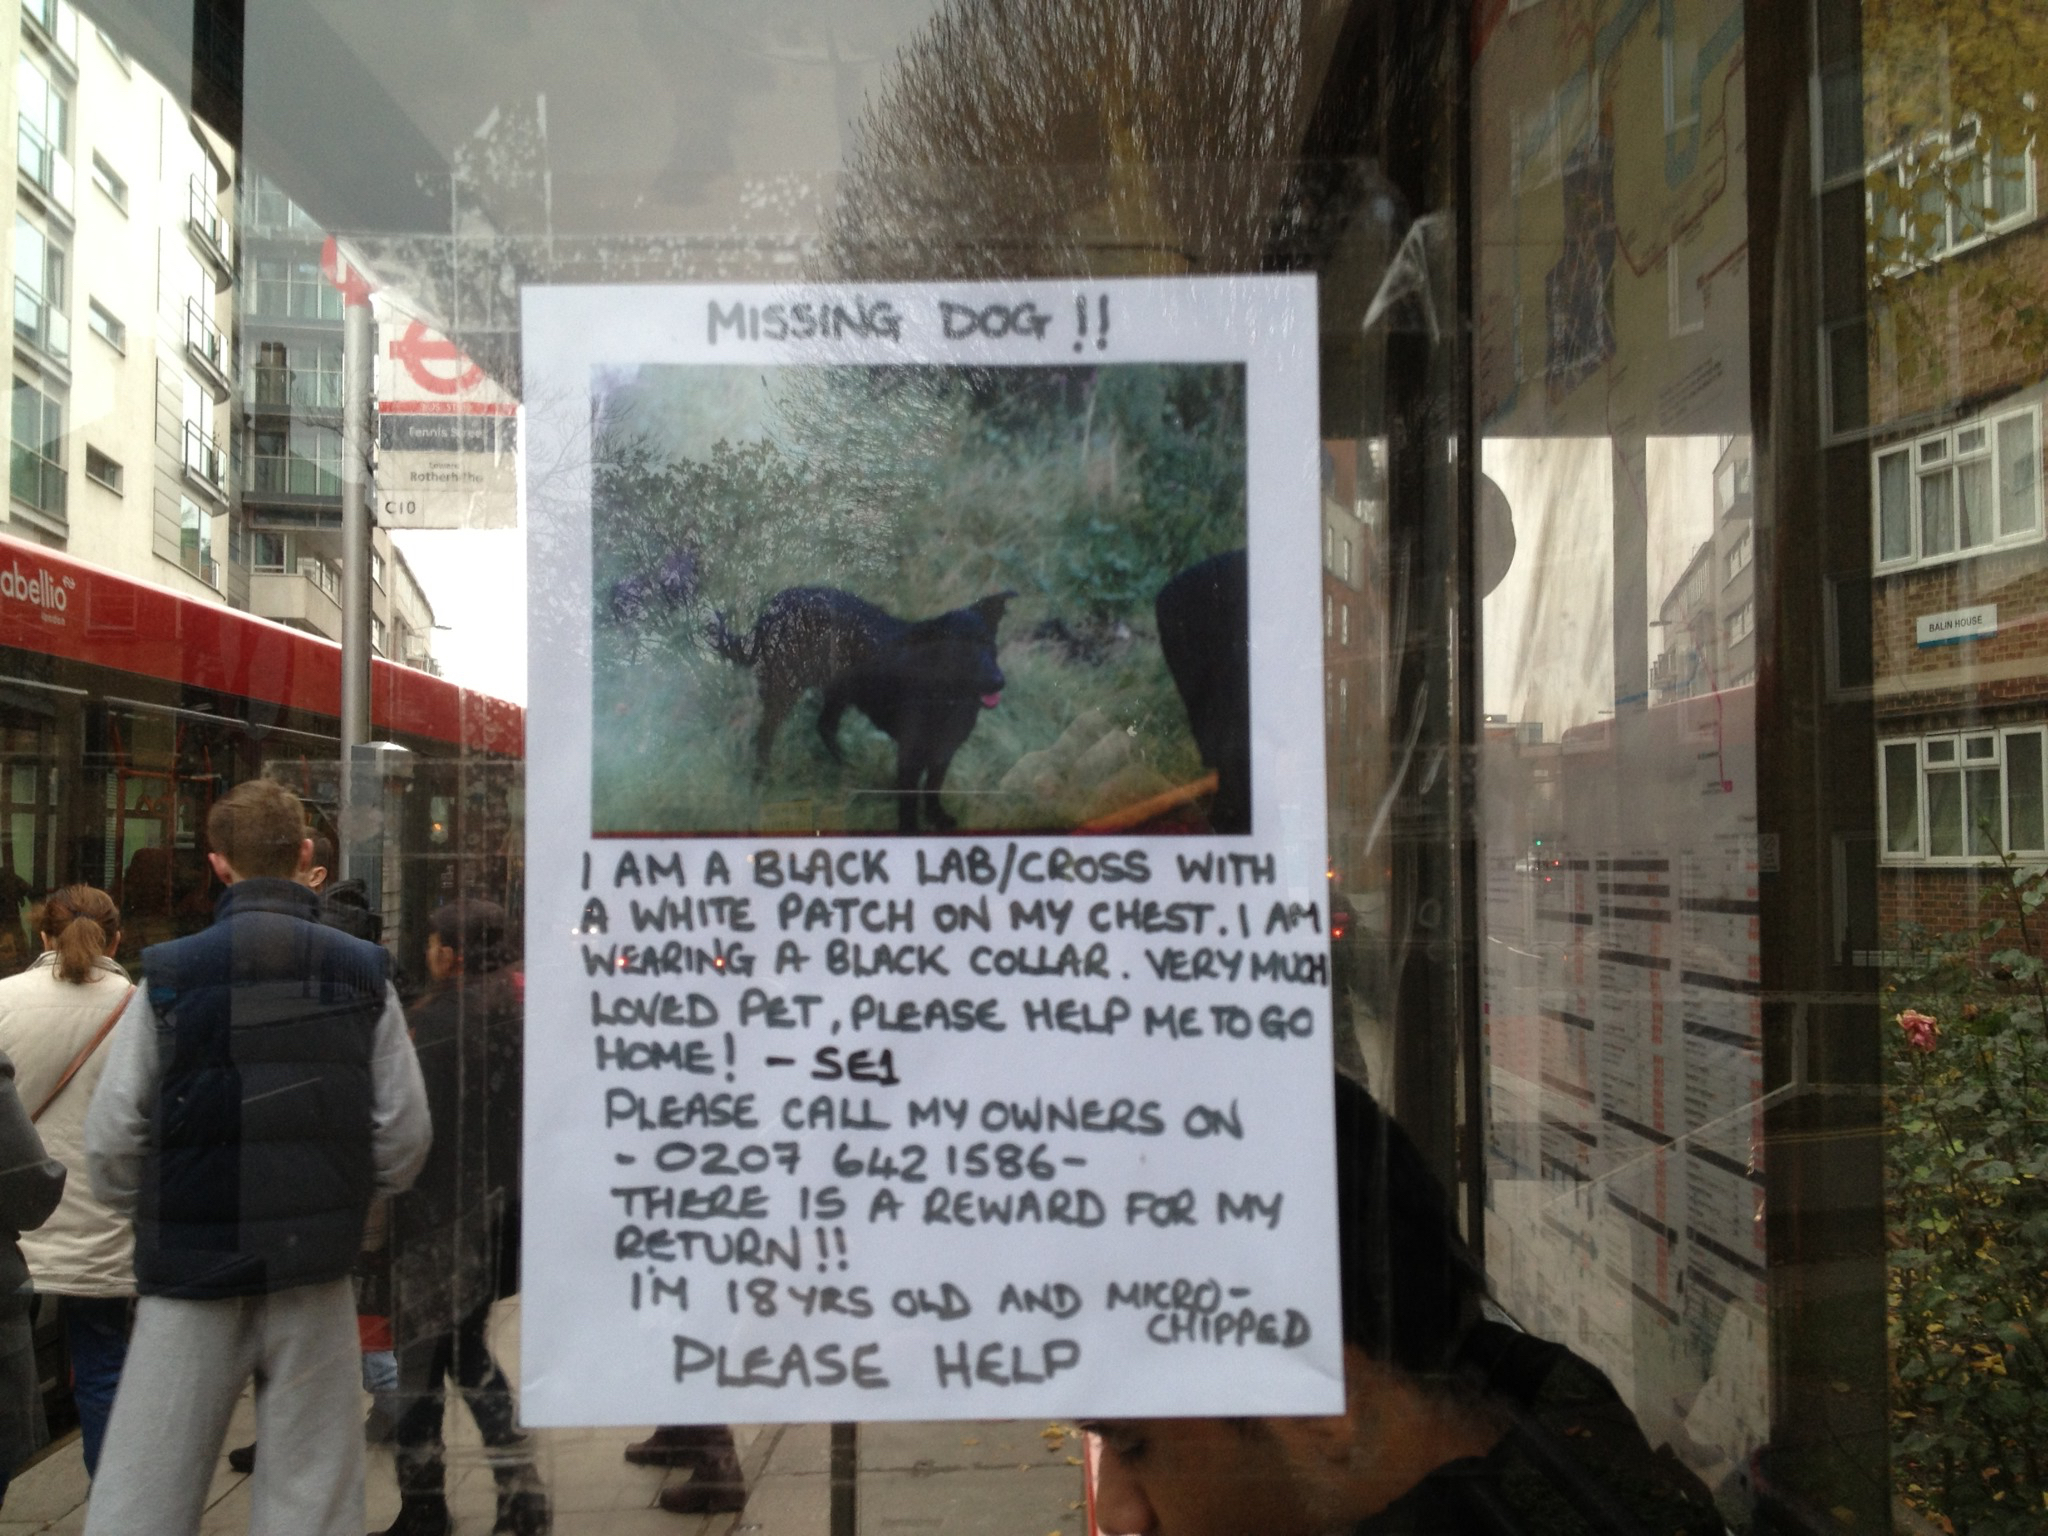 MISSING DOG!!
I AM A BLACK LAB/CROSS WITH
A WHITE PATCH ON MY CHEST. I AM
WEARING A BLACK COLLAR. VERY MUCH
LOVED PET, PLEASE HELP ME TO GO
HOME! - SE1
PLEASE CALL MY OWNERS ON
- 0207 642 1586 -
THERE IS A REWARD FOR MY
RETURN!!
I'M 18 YRS OLD AND MICRO-
CHIPPED
PLEASE HELP
BUS STOP
Tennis Street
towards
Rotherhithe
C10
abellio
london
BALIN HOUSE